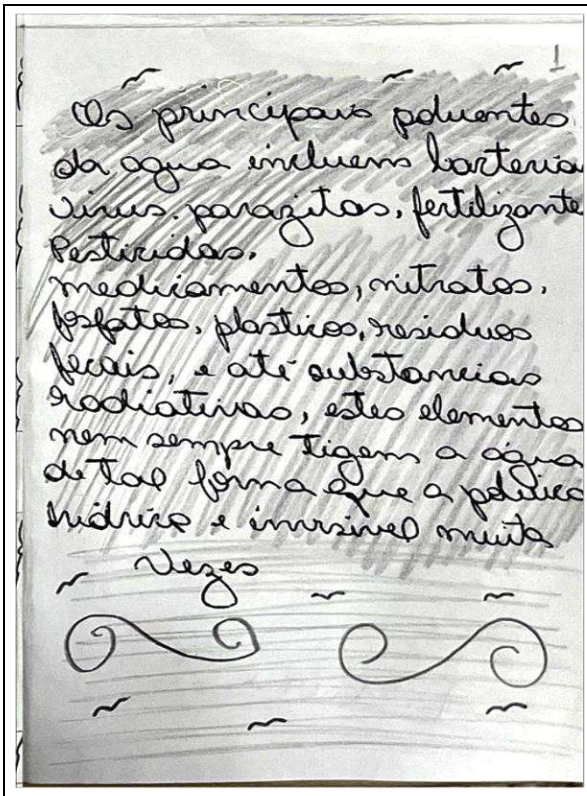 1
Os principais poluentes
da agua incluem bacteria
virus. parazitas, fertilizante
Pesticidas.
medicamentos, nitratos,
fosfatos, plasticos, residuos
fecais, e até substancias
radiativas, estes elementos
nem sempre tigem a água
de tal forma que a
hidrica e invisivel muita
Vezes